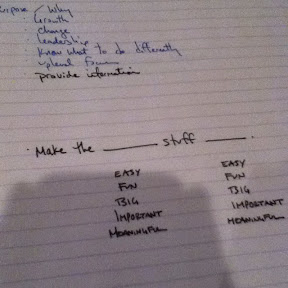 urpose • Why
• Growth
• change
• leadership
• know what to do differently
• upload
• provide information
• Make the ______ stuff ______.
EASY EASY
FUN FUN
BIG BIG
IMPORTANT IMPORTANT
MEANINGFUL MEANINGFUL